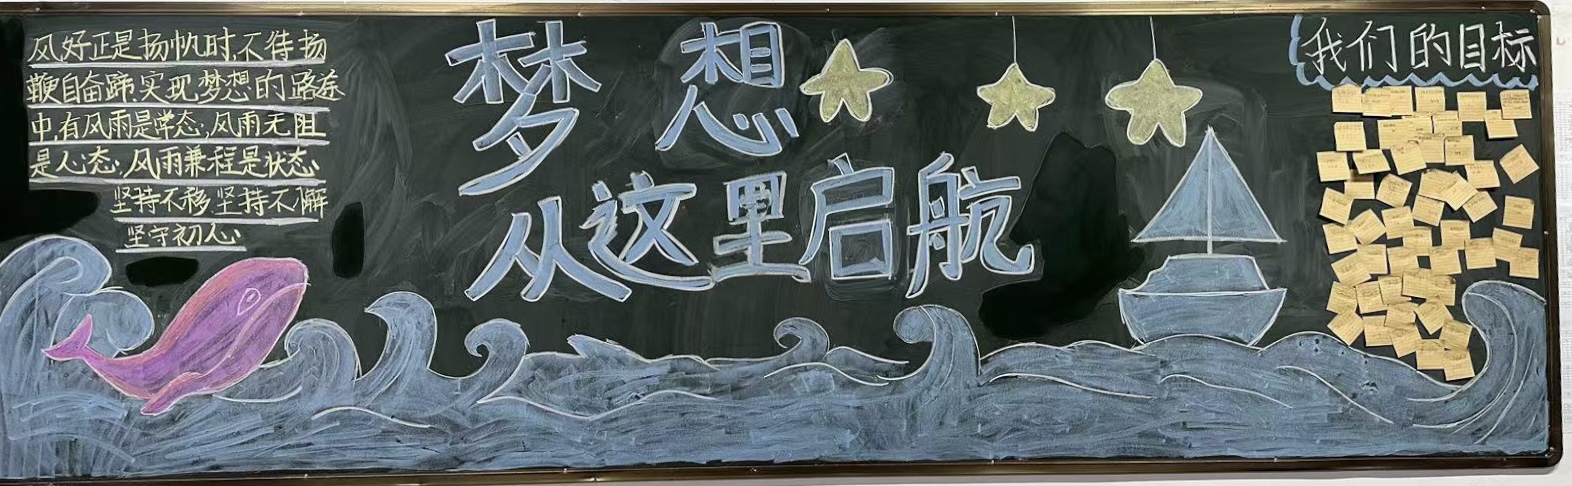 风好正是扬帆时,不待扬
鞭自奋蹄.实现梦想的路途
中,有风雨是常态,风雨无阻
是心态,风雨兼程是状态
坚持不移坚持不懈
坚守初心
梦想
从这里启航
我们的目标